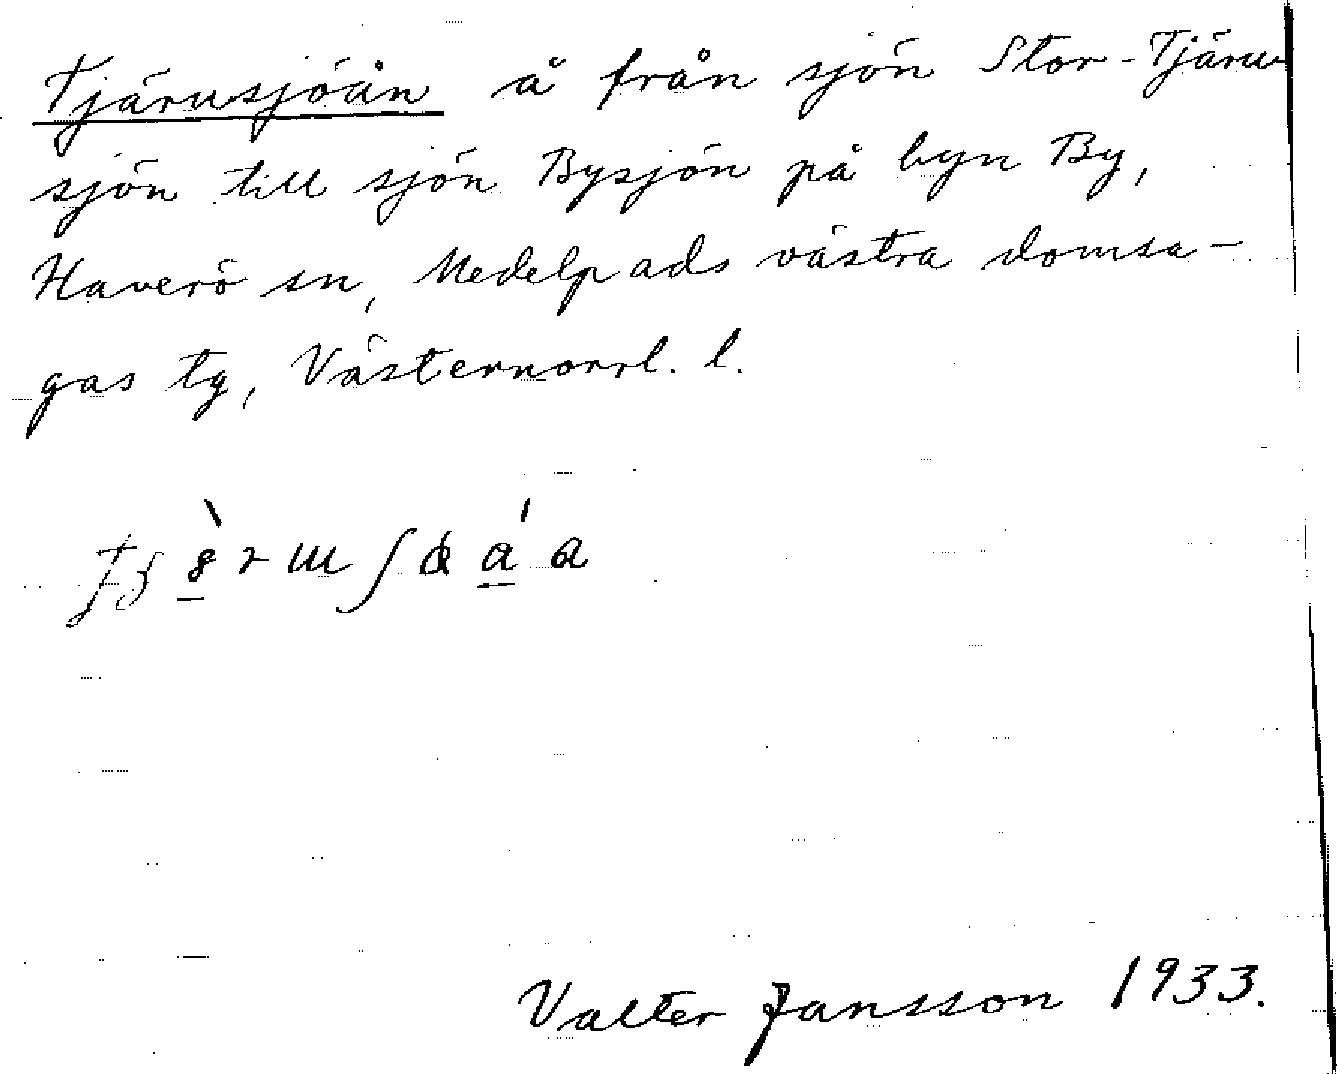 Tjärusjöån å från sjön Stor-Tjäru
sjön till sjön Bysjön på byn By,
Haverö sn, Medelpads västra domsa-
gas tg, Västernorrl. l.
Valter Jansson 1933.